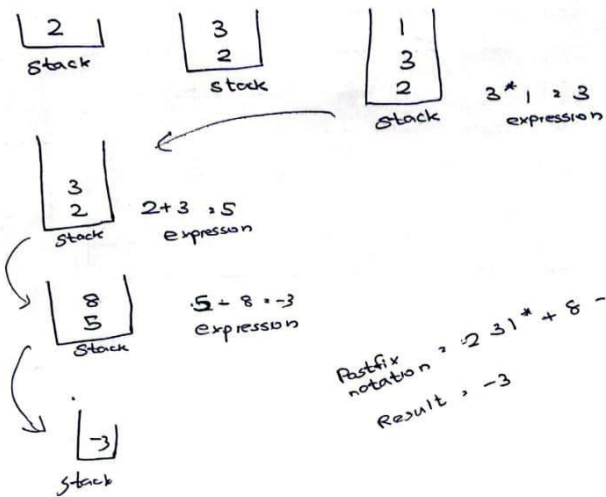 2
stack
3
2
stack
1
3
2
stack
3 * 1 = 3
expression
3
2
stack
2+3 = 5
expression
8
5
stack
5 - 8 = -3
expression
Postfix
notation = 2 3 1 * + 8 -
Result = -3
-3
stack